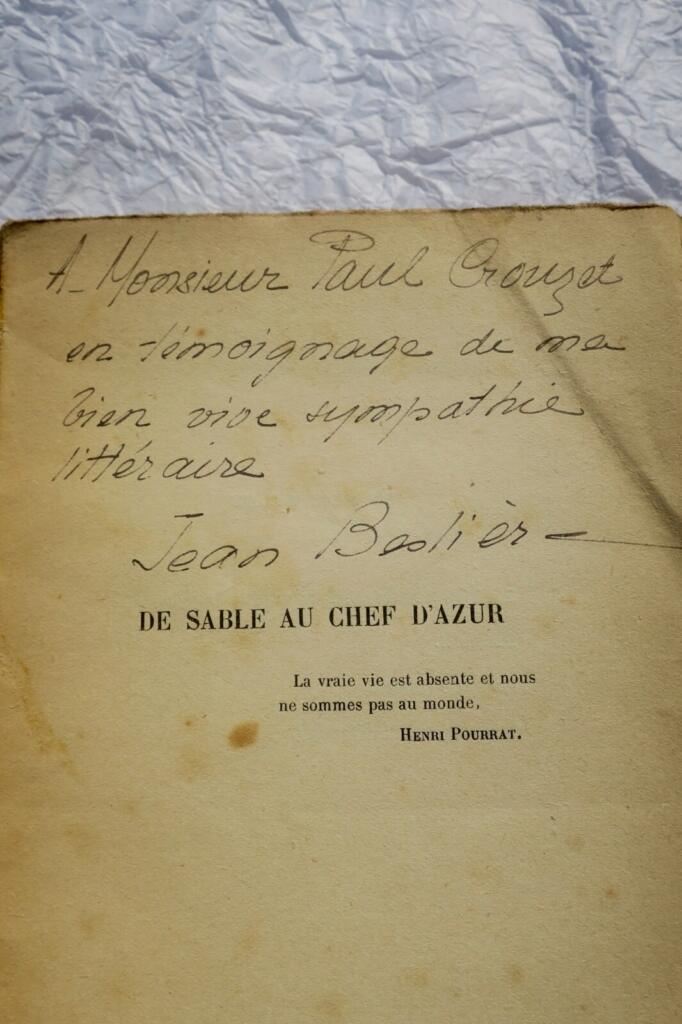 A Monsieur Paul Crouzet
en témoignage de ma
bien vive sympathie
littéraire
Jean Beslièr
DE SABLE AU CHEF D'AZUR
La vraie vie est absente et nous
ne sommes pas au monde,
HENRI POURRAT.